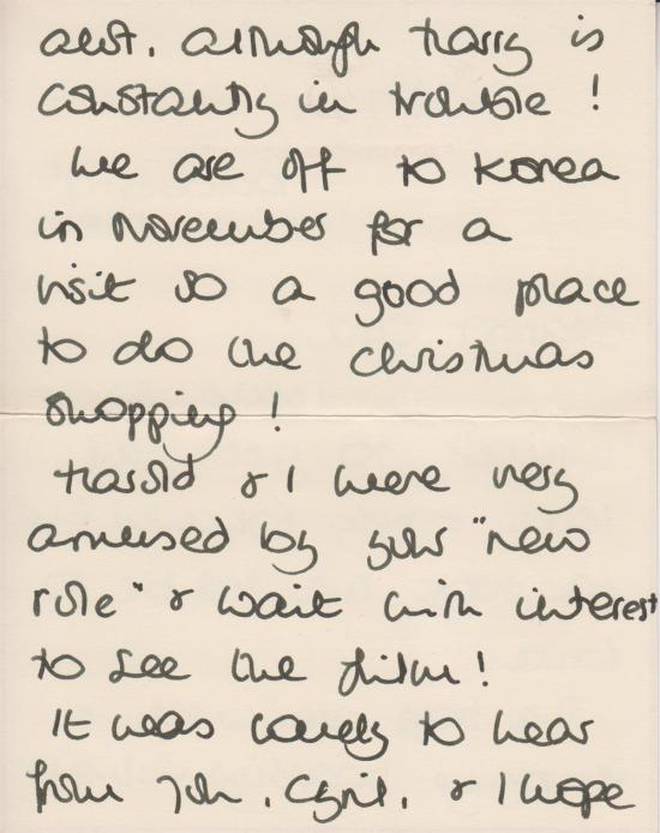 although Harry is
constantly in trouble !
We are off to Korea
in November for a
visit so a good place
to do the Christmas
shopping !
Harold & I were very
amused by your "new
role" & wait with interest
to see the film !
It was lovely to hear
from you, Cyril, & I hope